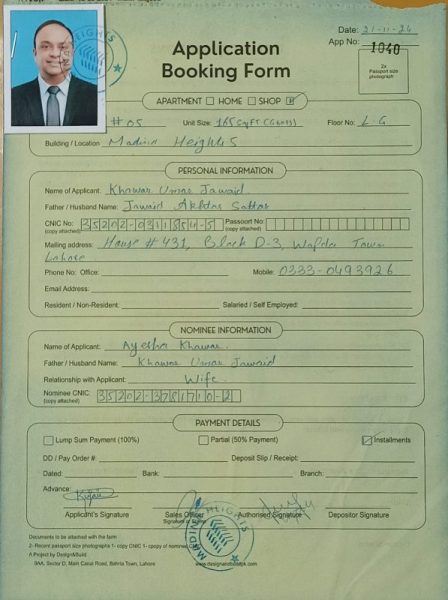 Date: 21-11-24
App No: 1040
Application
Booking Form
2x
Passport size
photograph
APARTMENT HOME SHOP
#05 Unit Size: 165 Sqft (Gross) Floor No: L-G
Building / Location Madina Heights
PERSONAL INFORMATION
Name of Applicant: Khawar Umar Jawaid
Father / Husband Name: Jawaid Akhtar Sattar
CNIC No: 35202-0311851-5 Passport No:
(copy attached) (copy attached)
Mailing address: House # 431, Block D-3, Wapda Town
Lahore
Phone No: Office: Mobile: 0333-0493926
Email Address:
Resident / Non-Resident: Salaried / Self Employed:
NOMINEE INFORMATION
Name of Applicant: Ayesha Khawar
Father / Husband Name: Khawar Umar Jawaid
Relationship with Applicant: Wife
Nominee CNIC: 35202-3781710-2
(copy attached)
PAYMENT DETAILS
Lump Sum Payment (100%) Partial (50% Payment) Installments
DD / Pay Order #: Deposit Slip / Receipt:
Dated: Bank: Branch:
Advance:
Applicant's Signature Sales Officer Authorised Signature Depositor Signature
MADINA HEIGHTS
Documents to be attached with the form
2- Recent passport size photographs 1- copy CNIC 1- copy of nominee
A Project by DesignnBuild
9AA, Sector D, Main Canal Road, Bahria Town, Lahore